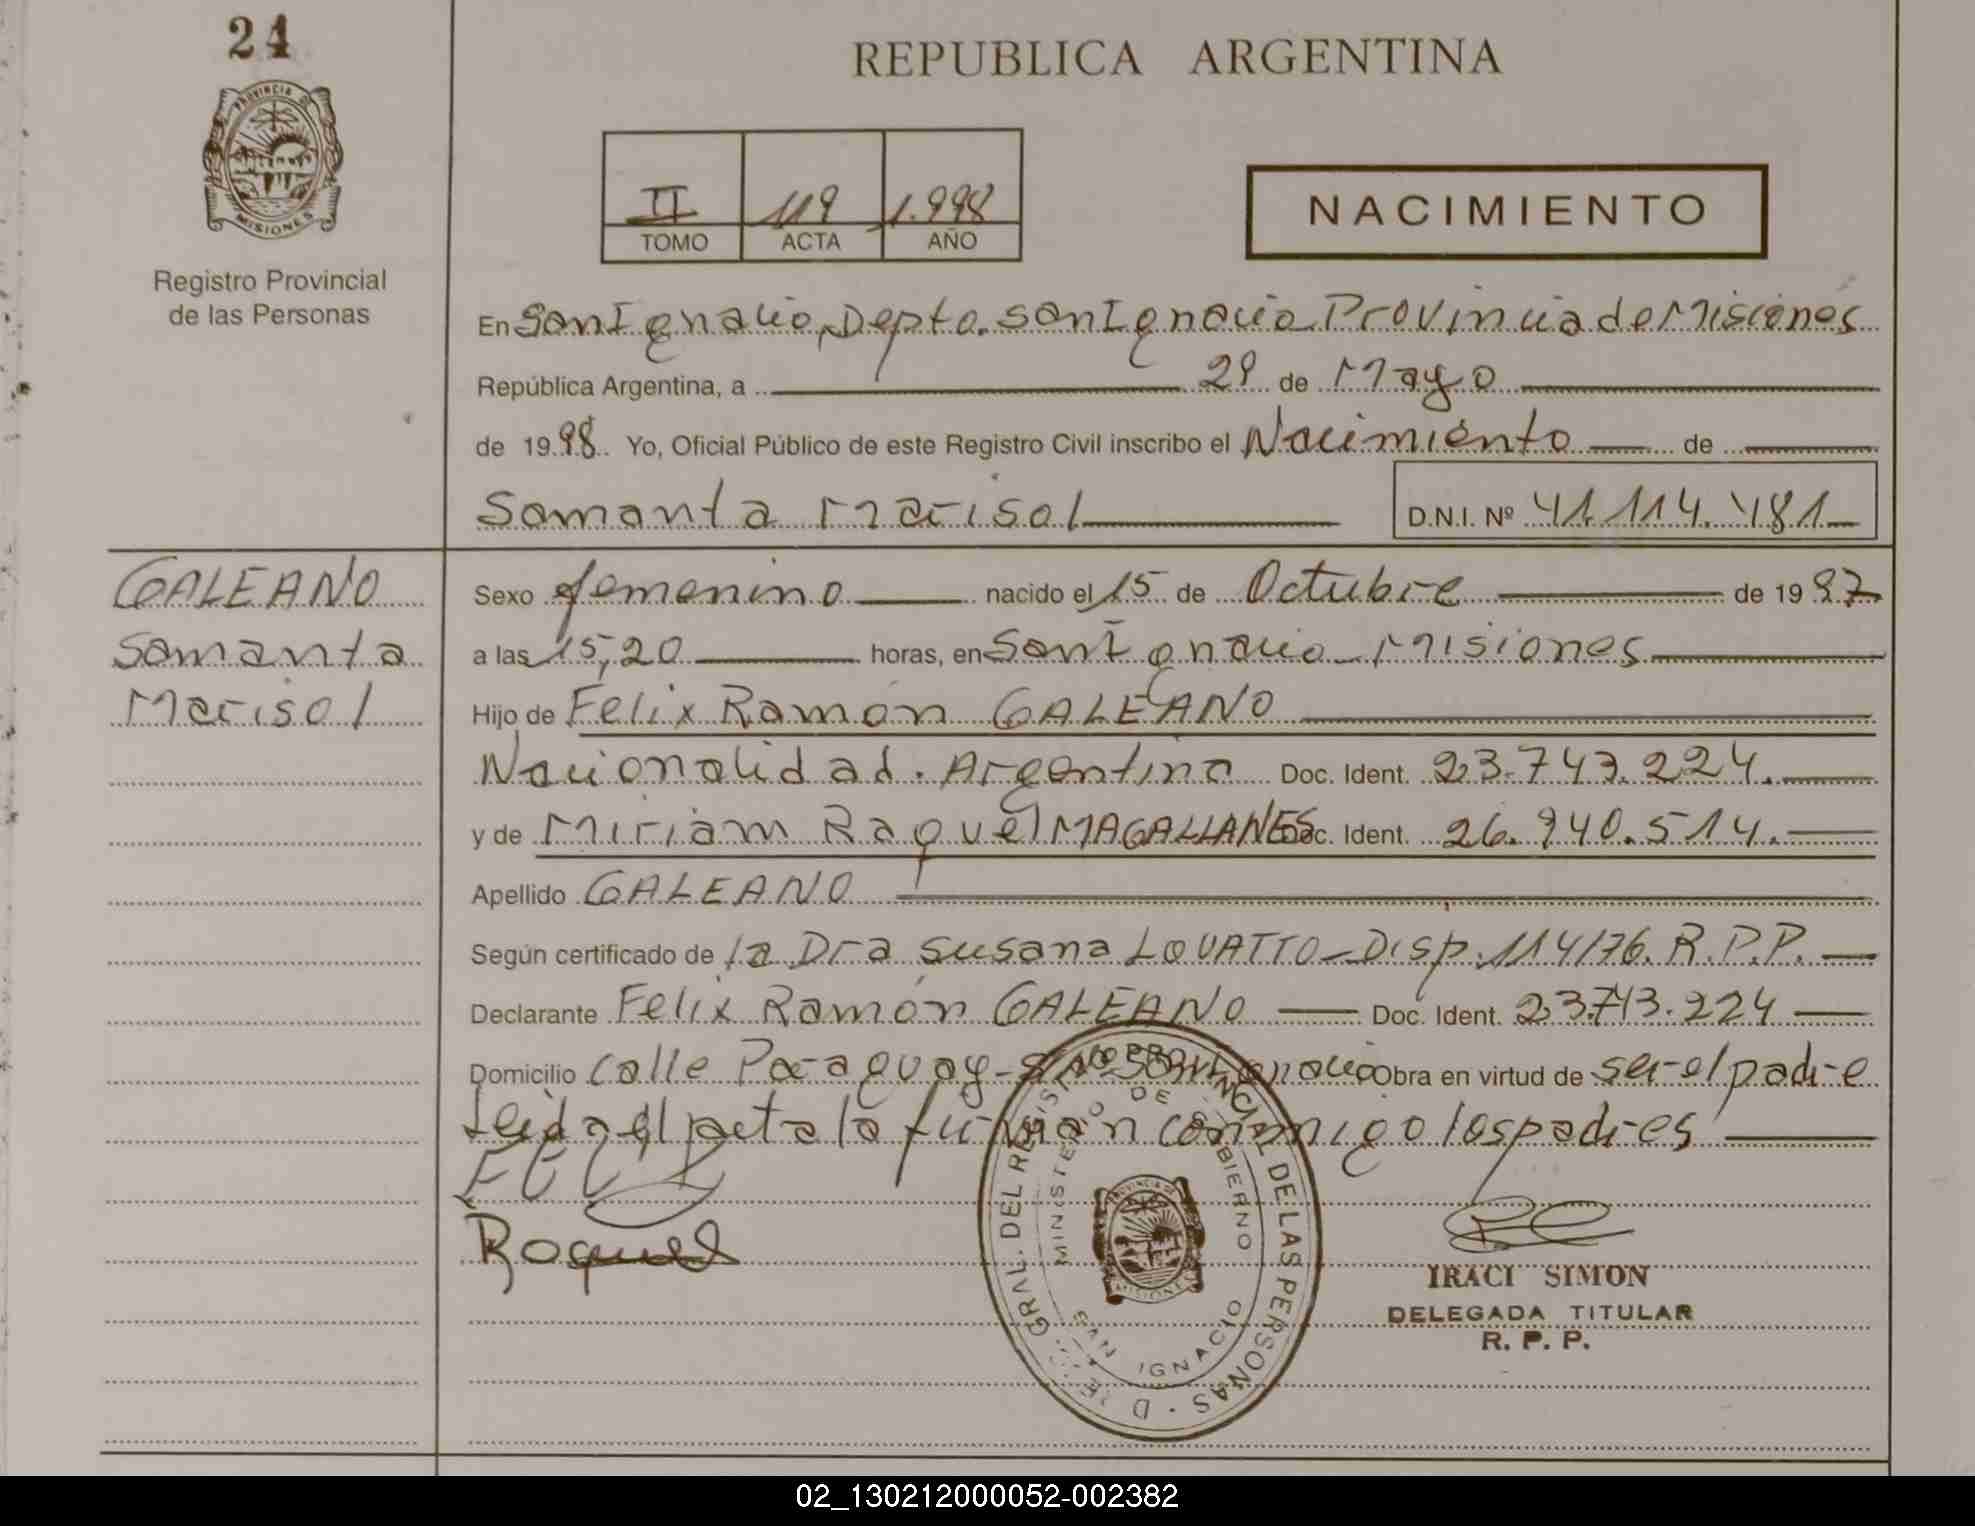 24
REPUBLICA ARGENTINA
PROVINCIA DE
MISIONES
Registro Provincial
de las Personas
II 119 1.998
TOMO ACTA AÑO
NACIMIENTO
En San Ignacio, Depto. San Ignacio Provincia de Misiones
República Argentina, a 29 de Mayo
de 1998. Yo, Oficial Público de este Registro Civil inscribo el Nacimiento de
Samanta Marisol D.N.I. Nº 41.114.481
GALEANO
Samanta
Marisol
Sexo femenino nacido el 15 de Octubre de 1997
a las 15,20 horas, en San Ignacio Misiones
Hijo de Felix Ramón GALEANO
Nacionalidad. Argentina Doc. Ident. 23.743.224.
y de Miriam Raquel MAGALLANES Doc. Ident. 26.940.514.
Apellido GALEANO
Según certificado de la Dra Susana LOVATTO - Disp. 114/76. R.P.P.
Declarante Felix Ramón GALEANO Doc. Ident. 23.743.224
Domicilio calle Paraguay - San Ignacio Obra en virtud de ser el padre
Leida el acta la firman conmigo los padres
Raquel
GRAL. DEL REGISTRO PROVINCIAL DE LAS PERSONAS
MINISTERIO DE GOBIERNO
SAN IGNACIO
PROVINCIA DE
MISIONES
IRACI SIMON
DELEGADA TITULAR
R. P. P.
02_130212000052-002382